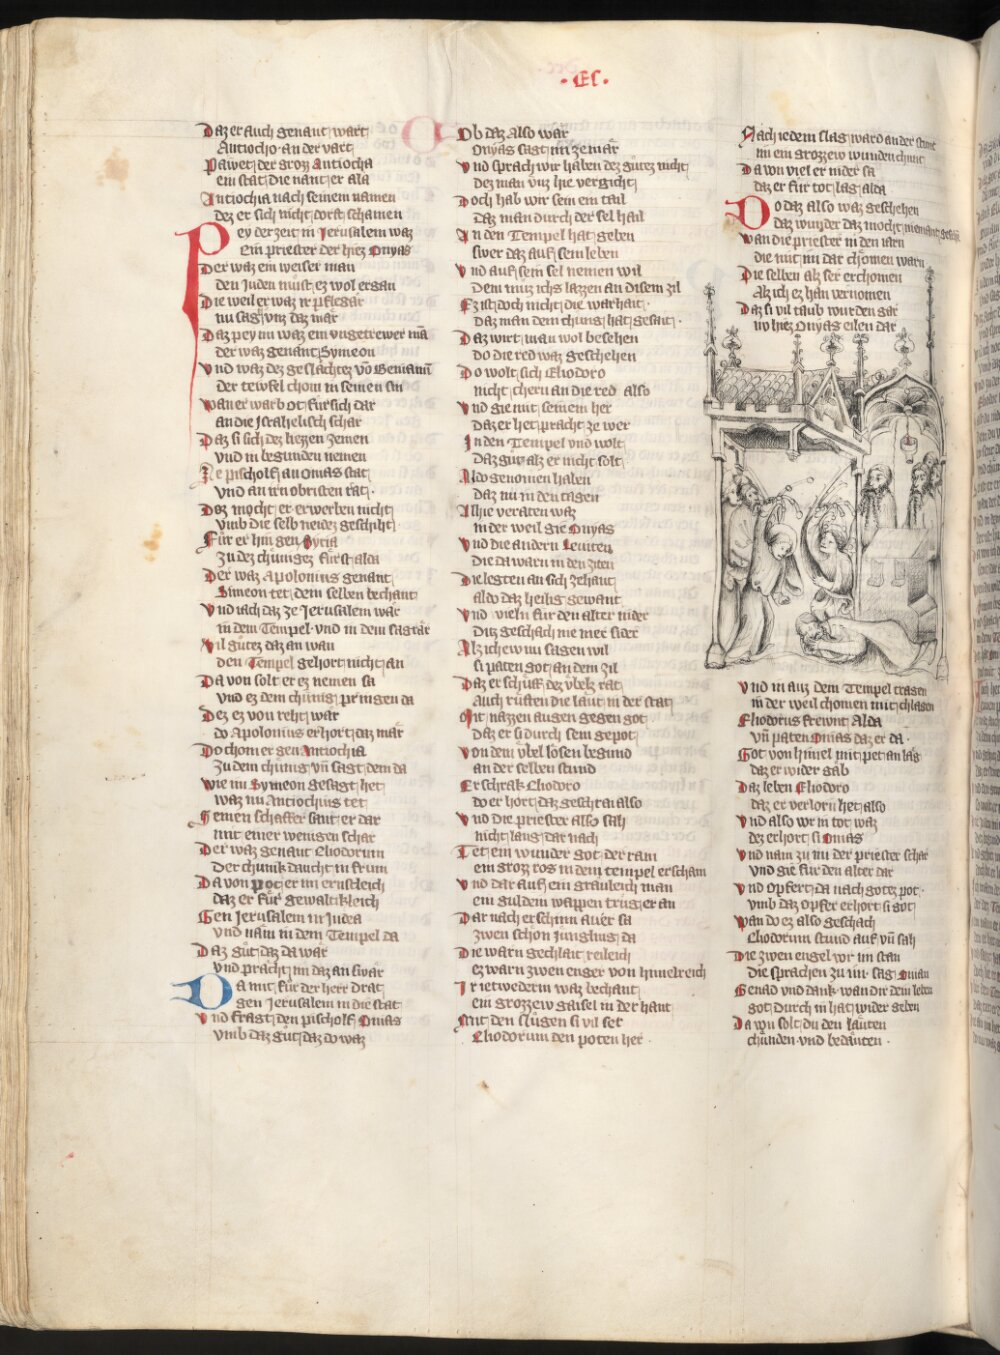 · EC ·
Daz er auch genant wart
Antiocho an der vart
Pawet der groz Antiocha
ein stat die nant er ala
Antiochia nach seinem namen
dez er sich nicht dorft schamen
Pey der zeit in Jerusalem waz
Ein priester der hiez Onyas
Der waz ein weiser man
den Juden must ez wol ergan
Die weil er waz ir pflegar
nu sag unz daz mar
Daz pey nu waz ein ungetrewer mā
der waz genant Symeon
Vnd waz dez geslachtez võ Beniamin
der tewfel chom in seinen sin
Wan er warb ot fur sich dar
an die Israhelisch schar
Daz si sich dez liezen zemen
vnd in begunden nemen
Ze pischolf an Onias stat
vnd an irn obristen rat ·
Dez mocht er erwerben nicht
vmb die selb neidez geschiht ·
Für er hin gen Syria
zu dez chünigez fürst alda
Der waz Apolonius genant
Simeon tet dem selben bechant
Vnd iach daz ze Jerusalem war
in dem Tempel vnd in dem sagrär
Vil gutez daz an wan
den Tempel gehort nicht an
Da von solt er ez nemen sa
vnd ez dem chünig pringen da
Dez ez von reht war
do Apolonius erhort daz mär
Do chom er gen Antiochia
zu dem chünig vñ sagt dem da
Wie im Symeon gesagt het
waz nu Antiochius tet
Seinen schaffer sant er dar
mit einer wenigen schar
Der waz genant Eliodorum
der chunk daucht in frum
Da von pot er im ernstleich
daz er für gewaltikleich
Gen Jerusalem in Judea
vnd nam in dem Tempel da
Daz gut daz da war
vnd pracht im daz an swar
Da mit für der herr drat
gen Jerusalem in die stat
Vnd fragt den pischolf Onias
vmb daz gut daz do waz
Ob daz also war
Onyas sagt im ze mar
Vnd sprach wir haben dez gutez nicht
dez man vnz hie vergicht
Doch hab wir sein ein tail
daz man durch der sel hail
In den Tempel hat geben
swer daz auf sein leben
Vnd auf sein sel nemen wil
dem muz ichs lazzen an disem zil
Ez ist doch nicht die warhait ·
daz man dem chung hat gesait ·
Daz wirt man wol besehen
do die red waz geschehen
Do wolt sich Eliodoro
nicht chern an die red also
Vnd gie mit seinem her
daz er het pracht ze wer
In den Tempel vnd wolt
daz gut alz er nicht solt
Also genomen haben
daz nu in den tagen
Alhie veraten waz
in der weil gie Onyas
Vnd die andern Leuiten
die da warn in den ziten
Die legten an sich zehant
aldo daz heilig gewant
Vnd vieln für den alter nider
ditz geschach nie mer sider
Alz ich ew nu sagen wil
si paten got an dem zil
Daz er schuff dez vbelz rat
auch rufften die läut in der stat
Mit nazzen augen gegen got
daz er si durch sein gepot
Von dem vbel lösen begund
an der selben stund
Erschrak Eliodoro
do er hort daz geschrai also
Vnd die priester also sah
nicht lang dar nach
Tet ein wunder got der rain
ein groz ros in dem tempel erschain
Vnd dar auf ein grauleich man
ein guldein wappen trug er an
Dar nach erschinn auer sa
zwen schon Jungling da
Die warn gechlait reileich
ez warn zwen enger von himelreich
Ir ietwederm waz bechant
ein grozzew gaisel in der hant
Mit den slügen si vil ser
Eliodorum den poten her ·
Nach iedem slag ward an der stunt
im ein grozzew wunden chunt
Da von viel er nider sa
daz er für tot lag alda
Do daz also waz geschehen
daz wunder daz mocht niemant geseh
Wan die priester in den iarn
die mit im dar chomen warn
Die selben alz ser erchomen
alz ich ez han vernomen
Daz si vil taub wurden gar
nv hiez Onyas eilen dar
Vnd in auz dem Tempel tragen
in der weil chomen mit chlagen
Eliodorus frewnt alda
vñ paten Onias daz er da ·
Got von himel mit pet an lag
daz er wider gab
Daz leben Eliodoro
daz er verlorn het also
Vnd also wr in tot waz
dez erhort si Onias
Vnd nam zu im der priester schar
vnd gie für den alter dar
Vnd opfert da nach gotz pot ·
vmb daz opfer erhort si got
Wan do ez also geschach
Eliodorum stund auf vñ sah
Die zwen engel vor im stan
die sprachen zu im sag Onian
Genad vnd dank wan dir dein leben
got durch in hat wider geben
Da von solt du den läuten
chünden vnd bedäuten ·